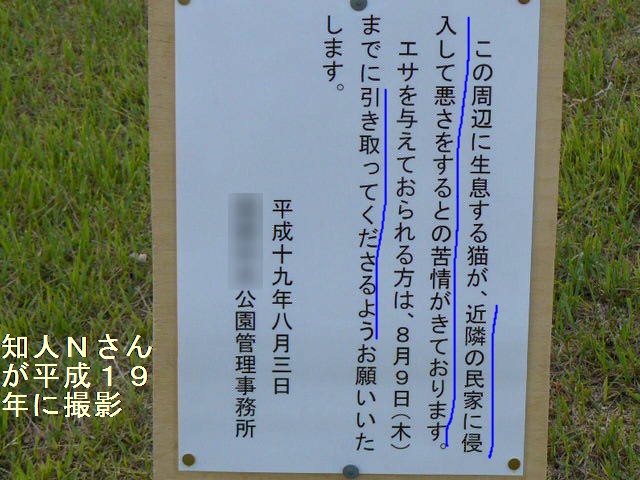 この周辺に生息する猫が、近隣の民家に侵
入して悪さをするとの苦情がきております。
エサを与えておられる方は、８月９日（木）
までに引き取ってくださるようお願いいた
します。
平成十九年八月三日
公園管理事務所
知人Ｎさん
が平成１９
年に撮影